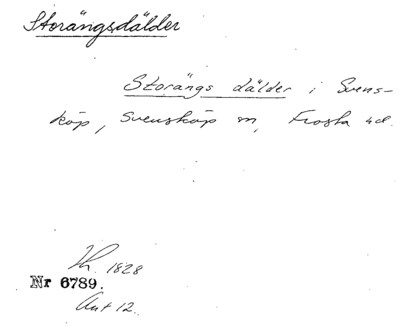 Storängsdälder
Storängs dälder i Svens-
köp, Svensköp sn, Frosta hd.
1828
Nr 6789.
Ant 12.